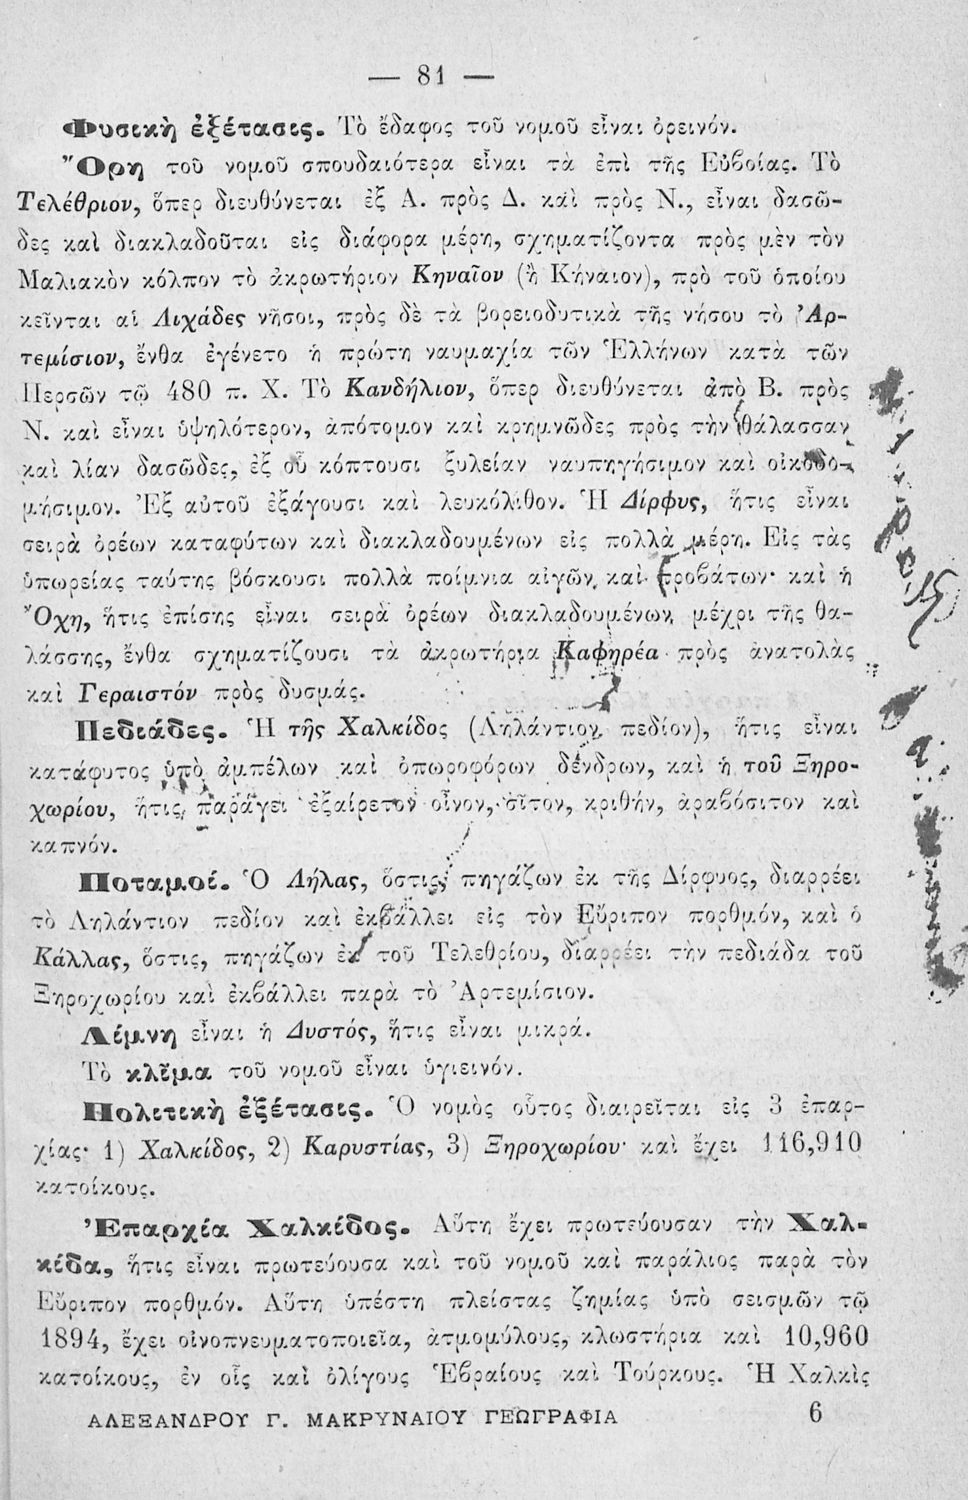 — 81 —
Φυσικὴ ἐξέτασις. Τὸ ἔδαφος τοῦ νομοῦ εἶναι ὀρεινόν.
Ὄρη τοῦ νομοῦ σπουδαιότερα εἶναι τὰ ἐπὶ τῆς Εὐβοίας. Τὸ
Τελέθριον, ὅπερ διευθύνεται ἐξ Α. πρὸς Δ. καὶ πρὸς Ν., εἶναι δασῶ-
δες καὶ διακλαδοῦται εἰς διάφορα μέρη, σχηματίζοντα πρὸς μὲν τὸν
Μαλιακὸν κόλπον τὸ ἀκρωτήριον Κηναῖον (ἢ Κήναιον), πρὸ τοῦ ὁποίου
κεῖνται αἱ Λιχάδες νῆσοι, πρὸς δὲ τὰ βορειοδυτικὰ τῆς νήσου τὸ Ἀρ-
τεμίσιον, ἔνθα ἐγένετο ἡ πρώτη ναυμαχία τῶν Ἑλλήνων κατὰ τῶν
Περσῶν τῷ 480 π. Χ. Τὸ Κανδήλιον, ὅπερ διευθύνεται ἀπὸ Β. πρὸς
Ν. καὶ εἶναι ὑψηλότερον, ἀπότομον καὶ κρημνῶδες πρὸς τὴν θάλασσαν
καὶ λίαν δασῶδες, ἐξ οὗ κόπτουσι ξυλείαν ναυπηγήσιμον καὶ οἰκοδο-
μήσιμον. Ἐξ αὐτοῦ ἐξάγουσι καὶ λευκόλιθον. Ἡ Δίρφυς, ἥτις εἶναι
σειρὰ ὀρέων καταφύτων καὶ διακλαδουμένων εἰς πολλὰ μέρη. Εἰς τὰς
ὑπωρείας ταύτης βόσκουσι πολλὰ ποίμνια αἰγῶν καὶ προβάτων· καὶ ἡ
Ὄχη, ἥτις ἐπίσης εἶναι σειρὰ ὀρέων διακλαδουμένων μέχρι τῆς θα-
λάσσης, ἔνθα σχηματίζουσι τὰ ἀκρωτήρια Καφηρέα πρὸς ἀνατολὰς
καὶ Γεραιστόν πρὸς δυσμάς.
Πεδιάδες. Ἡ τῆς Χαλκίδος (Ληλάντιον πεδίον), ἥτις εἶναι
κατάφυτος ὑπὸ ἀμπέλων καὶ ὀπωροφόρων δένδρων, καὶ ἡ τοῦ Ξηρο-
χωρίου, ἥτις παράγει ἐξαίρετον οἶνον, σῖτον, κριθήν, ἀραβόσιτον καὶ
καπνόν.
Ποταμοί. Ὁ Λήλας, ὅστις, πηγάζων ἐκ τῆς Δίρφυος, διαρρέει
τὸ Ληλάντιον πεδίον καὶ ἐκβάλλει εἰς τὸν Εὔριπον πορθμόν, καὶ ὁ
Κάλλας, ὅστις, πηγάζων ἐκ τοῦ Τελεθρίου, διαρρέει τὴν πεδιάδα τοῦ
Ξηροχωρίου καὶ ἐκβάλλει παρὰ τὸ Ἀρτεμίσιον.
Λίμνη εἶναι ἡ Δυστός, ἥτις εἶναι μικρά.
Τὸ κλῖμα τοῦ νομοῦ εἶναι ὑγιεινόν.
Πολιτικὴ ἐξέτασις. Ὁ νομὸς οὗτος διαιρεῖται εἰς 3 ἐπαρ-
χίας· 1) Χαλκίδος, 2) Καρυστίας, 3) Ξηροχωρίου· καὶ ἔχει 116,910
κατοίκους.
Ἐπαρχία Χαλκίδος. Αὕτη ἔχει πρωτεύουσαν τὴν Χαλ-
κίδα, ἥτις εἶναι πρωτεύουσα καὶ τοῦ νομοῦ καὶ παράλιος παρὰ τὸν
Εὔριπον πορθμόν. Αὕτη ὑπέστη πλείστας ζημίας ὑπὸ σεισμῶν τῷ
1894, ἔχει οἰνοπνευματοποιεῖα, ἀτμομύλους, κλωστήρια καὶ 10,960
κατοίκους, ἐν οἷς καὶ ὀλίγους Ἑβραίους καὶ Τούρκους. Ἡ Χαλκὶς
ΑΛΕΞΑΝΔΡΟΥ Γ. ΜΑΚΡΥΝΑΙΟΥ ΓΕΩΓΡΑΦΙΑ 6